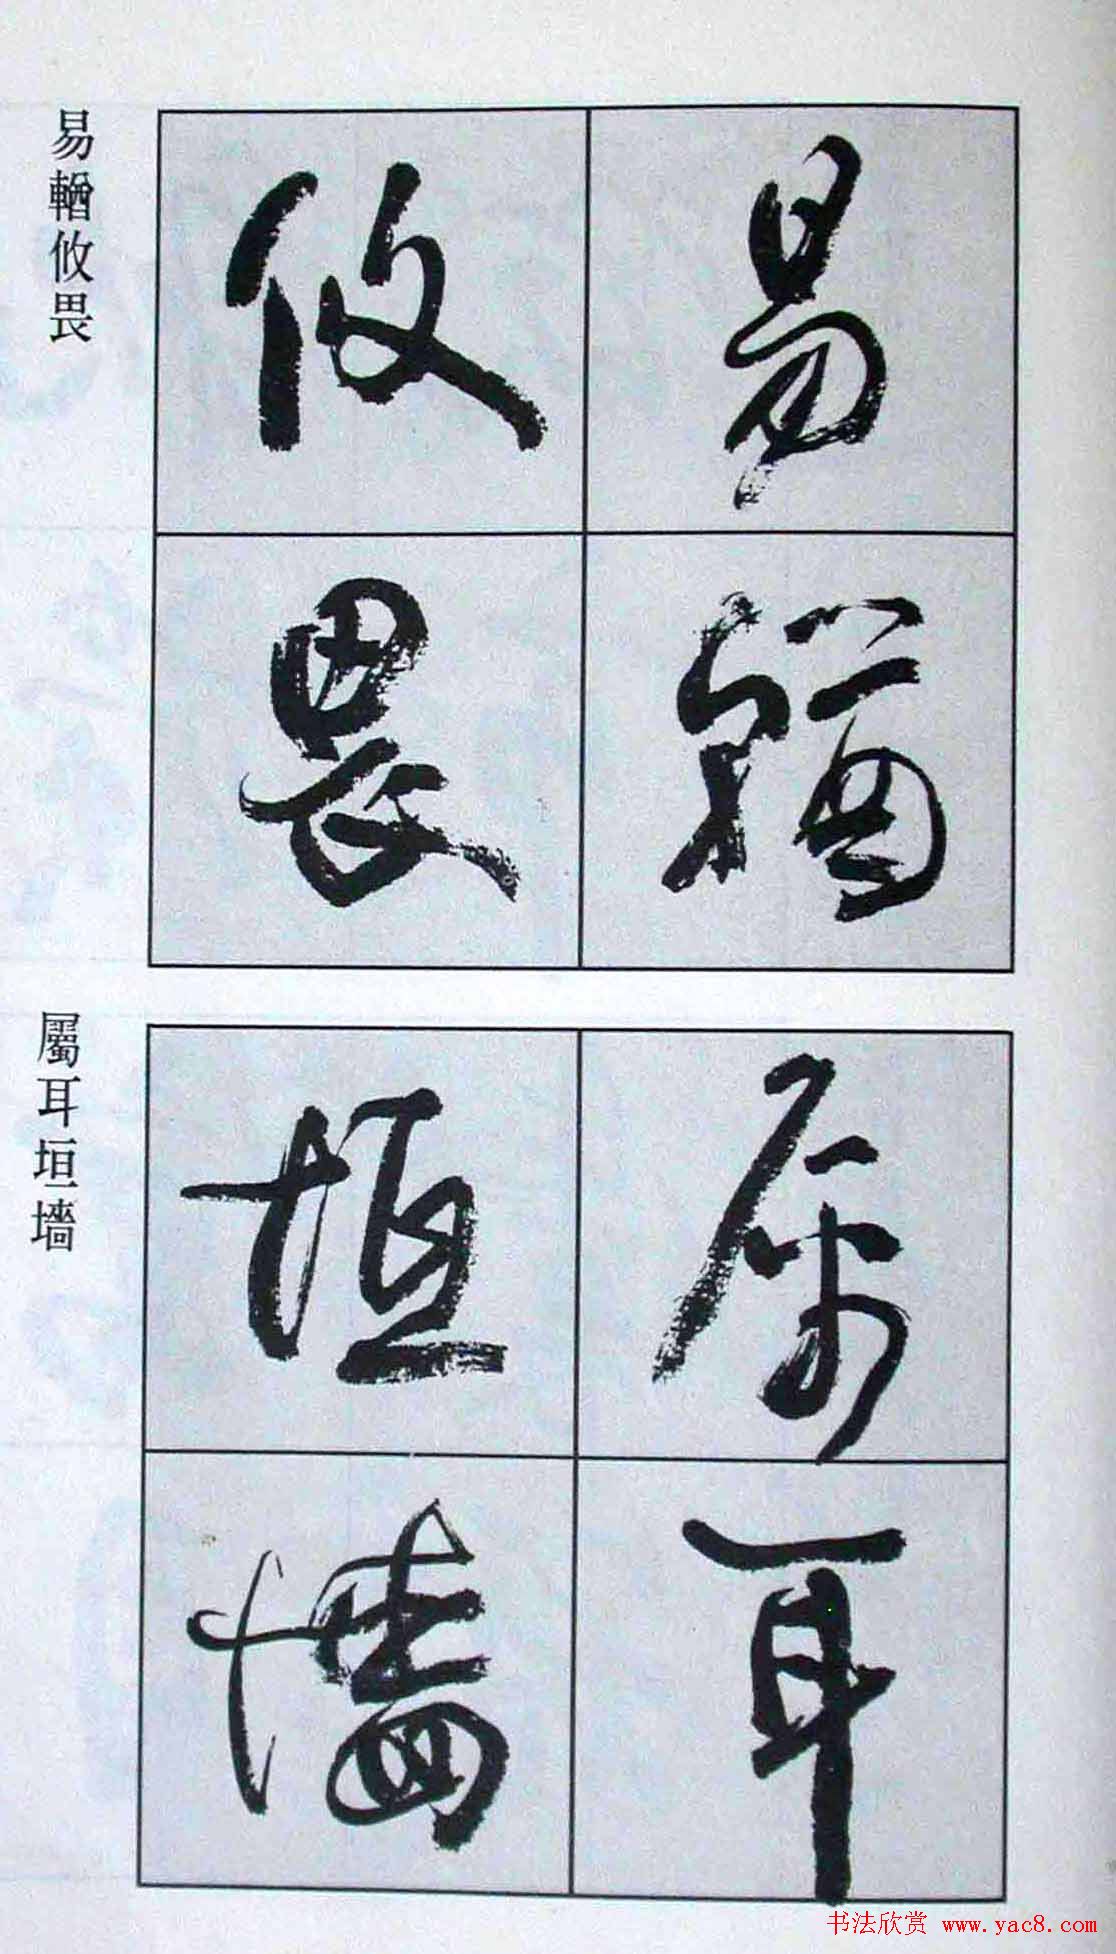 易輶攸畏
易輶
攸畏
屬耳垣墻
屬耳
垣墻
书法欣赏 www.yac8.com